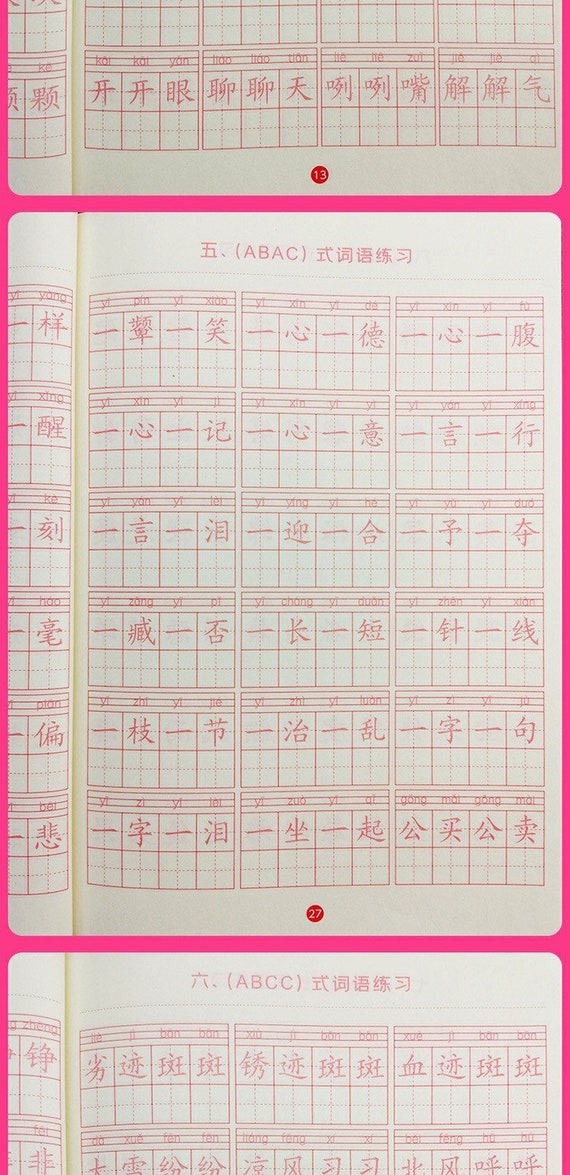 kē kāi kāi yǎn liáo liáo tiān liē liē zuǐ jiě jiě qì
颗 开开眼 聊聊天 咧咧嘴 解解气
13
五、（ABAC）式词语练习
yī yàng yī pín yī xiào yī xīn yī dé yī xīn yī fù
一样 一颦一笑 一心一德 一心一腹
yī xǐng yī xīn yī jì yī xīn yī yì yī yán yī xíng
一醒 一心一记 一心一意 一言一行
yī kè yī yán yī lèi yī yíng yī hé yī yǔ yī duó
一刻 一言一泪 一迎一合 一予一夺
yī háo yī zāng yī pǐ yī cháng yī duǎn yī zhēn yī xiàn
一毫 一臧一否 一长一短 一针一线
yī piān yī zhī yī jié yī zhì yī luàn yī zì yī jù
一偏 一枝一节 一治一乱 一字一句
yī bēi yī zì yī lèi yī zuò yī qǐ gōng mǎi gōng mài
一悲 一字一泪 一坐一起 公买公卖
27
六、（ABCC）式词语练习
zhēng liè jì bān bān xiù jì bān bān xuè jì bān bān
铮 劣迹斑斑 锈迹斑斑 血迹斑斑
fēi dà xuě fēn fēn liáng fēng xí xí běi fēng hū hū
非 大雪纷纷 凉风习习 北风呼呼